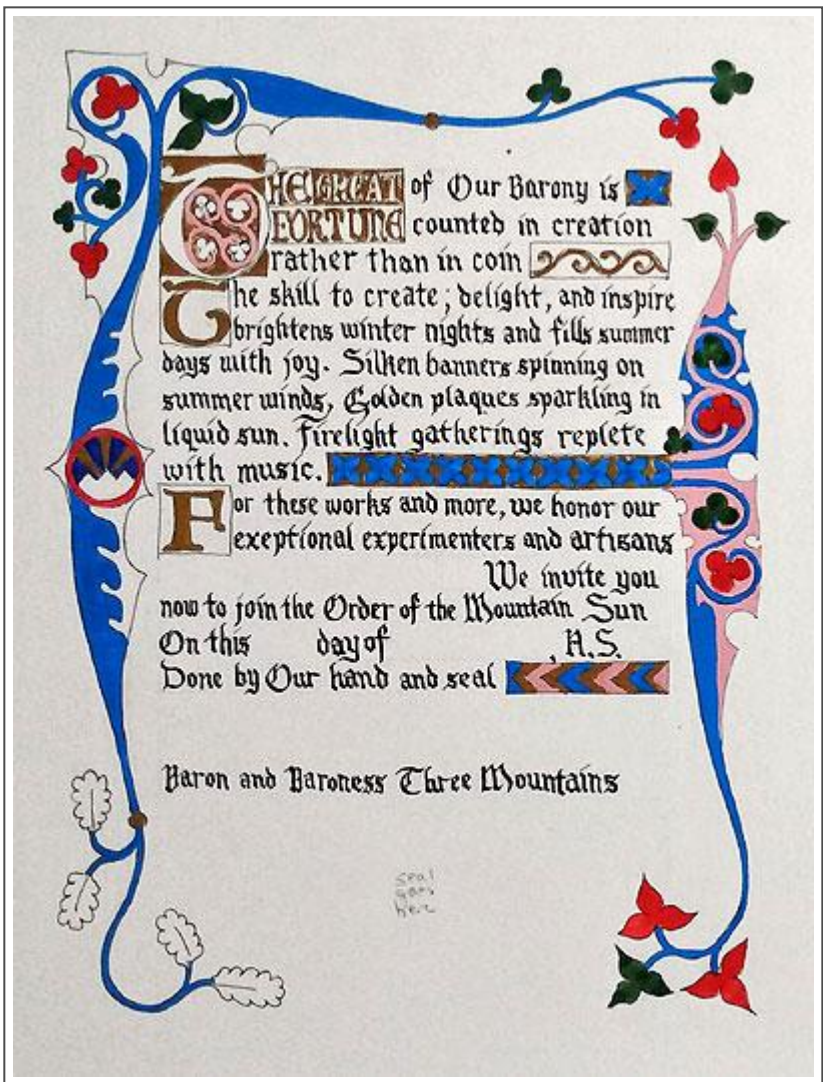 THE GREAT of Our Barony is
FORTUNE counted in creation
rather than in coin
The skill to create; delight, and inspire
brightens winter nights and fills summer
days with joy. Silken banners spinning on
summer winds, Golden plaques sparkling in
liquid sun. Firelight gatherings replete
with music.
For these works and more, we honor our
exeptional experimenters and artisans
We invite you
now to join the Order of the Mountain Sun
On this day of , A.S.
Done by Our hand and seal
Baron and Baroness Three Mountains
seal
goes
here